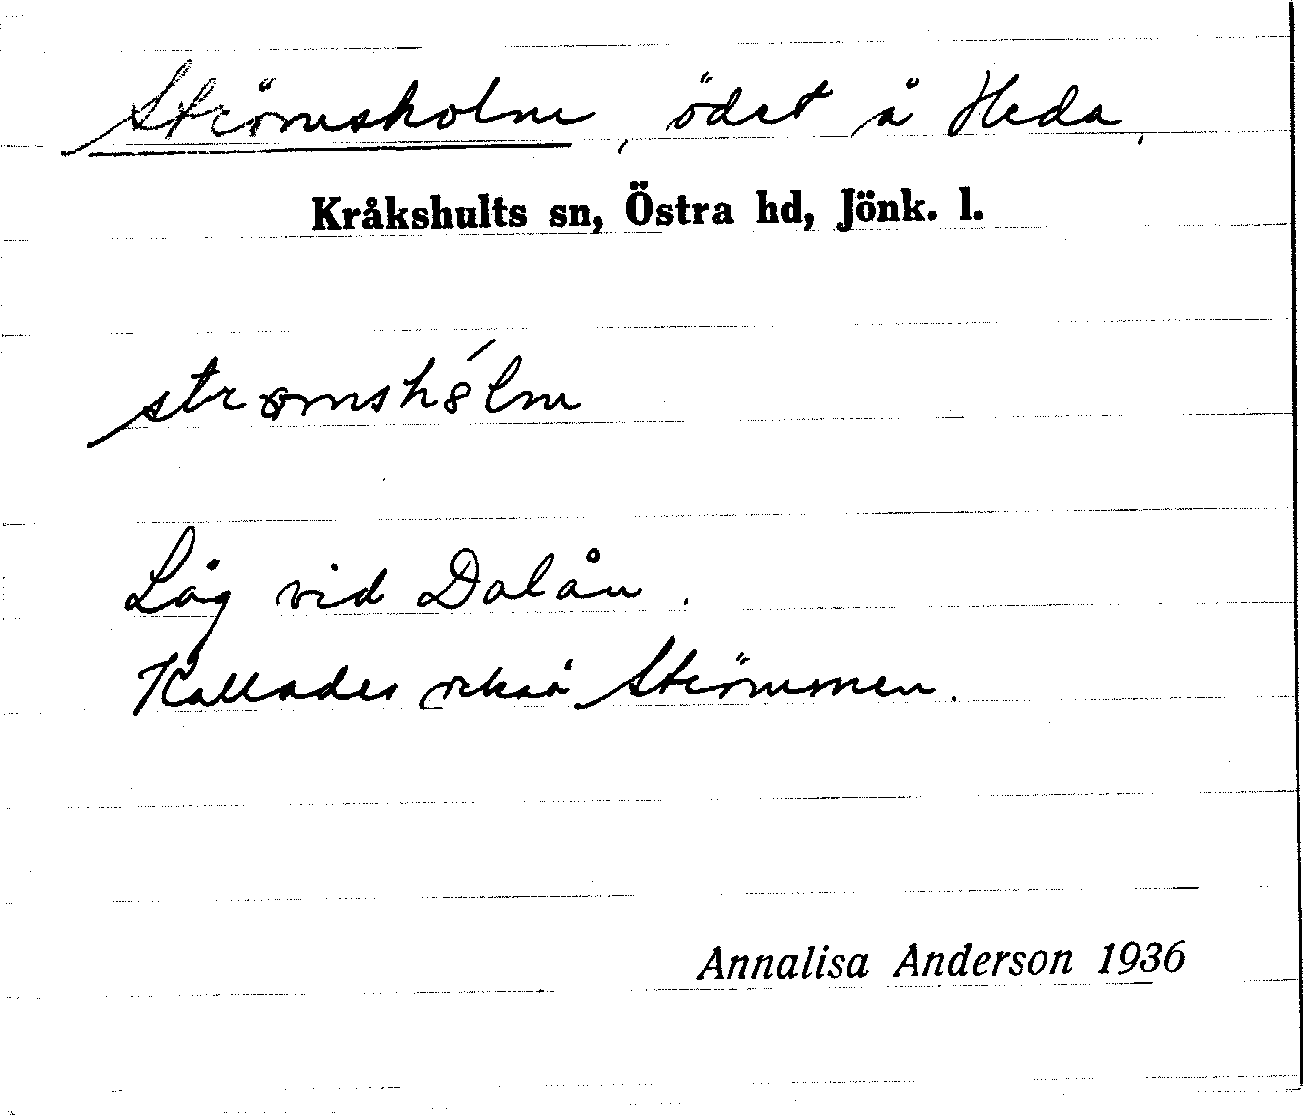 Strömsholm, ödet å Heda.
Kråkshults sn, Östra hd, Jönk. l.
Låg vid Dalån.
Kallades också Strömmen.
Annalisa Anderson 1936